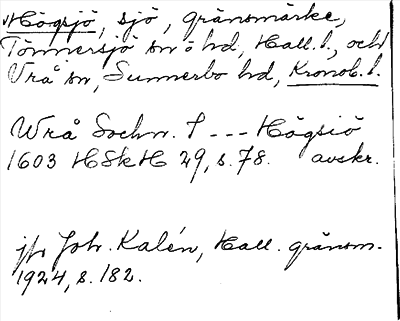 Högsjö, sjö, gränsmärke,
Tönnersjö sn o hd, Hall. l., och
Vrå sn, Sunnerbo hd, Kronob. l.
Wrå Sochn. --- Högsiö
1603 HSkH 29, s. 78. avskr.
jfr Joh. Kalén, Hall. gränsm.
1924, s. 182.